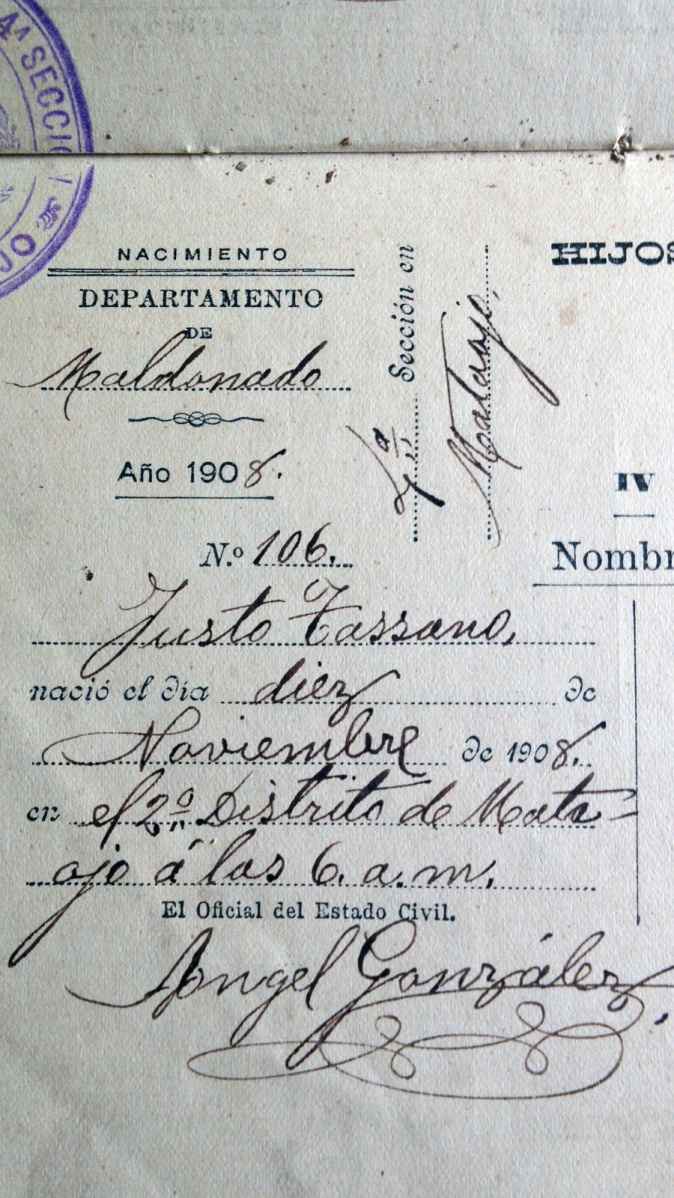 4ª SECCIÓN
JO
NACIMIENTO
DEPARTAMENTO
DE
Maldonado
Año 1908.
4ª Sección en
Mataojo,
HIJOS
IV
Nombr
N.º 106.
Justo Tassano,
nació el día diez de
Noviembre de 1908.
en el 2º Distrito de Mata-
ojo á las 6. a.m.
El Oficial del Estado Civil.
Angel González